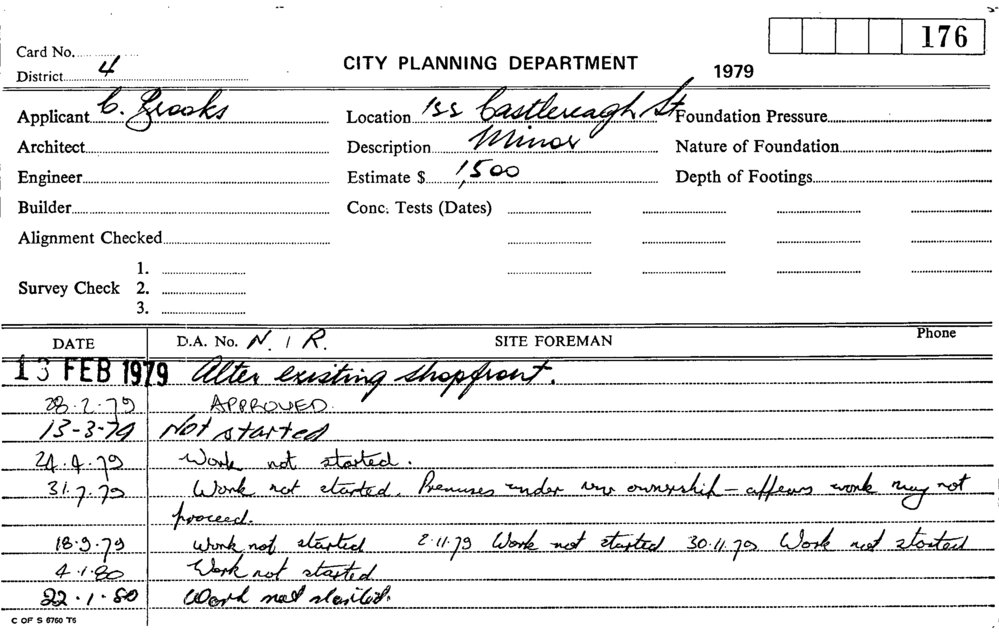 176
Card No.
District 4
CITY PLANNING DEPARTMENT
1979
Applicant C. Brooks
Location 155 Castlereagh St
Foundation Pressure
Architect
Description Minor
Nature of Foundation
Engineer
Estimate $ 1,500
Depth of Footings
Builder
Conc. Tests (Dates)
Alignment Checked
Survey Check
1.
2.
3.
DATE D.A. No. N.I.R. SITE FOREMAN Phone
13 FEB 1979 Alter existing shopfront.
28.2.79 APPROVED.
13-3-79 Not started
24.4.79 Work not started.
31.7.79 Work not started. Premises under new ownership - appears work may not
proceed.
18.9.79 Work not started 2.11.79 Work not started 30.11.79 Work not started
4.1.80 Work not started
22.1.80 Work not started.
C OF S 6760 T6